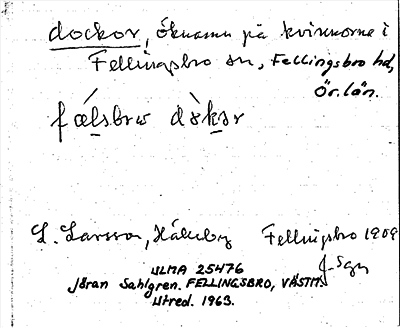 dockor, öknamn på kvinnorna i
Fellingsbro sn, Fellingsbro hd,
Ör. län.
fælsbro dòkər
L. Larsson, Hälleby Fellingsbro 1909
J. Sgn
ULMA 25476
Jöran Sahlgren. FELLINGSBRO, VÄSTM.
Utred. 1963.